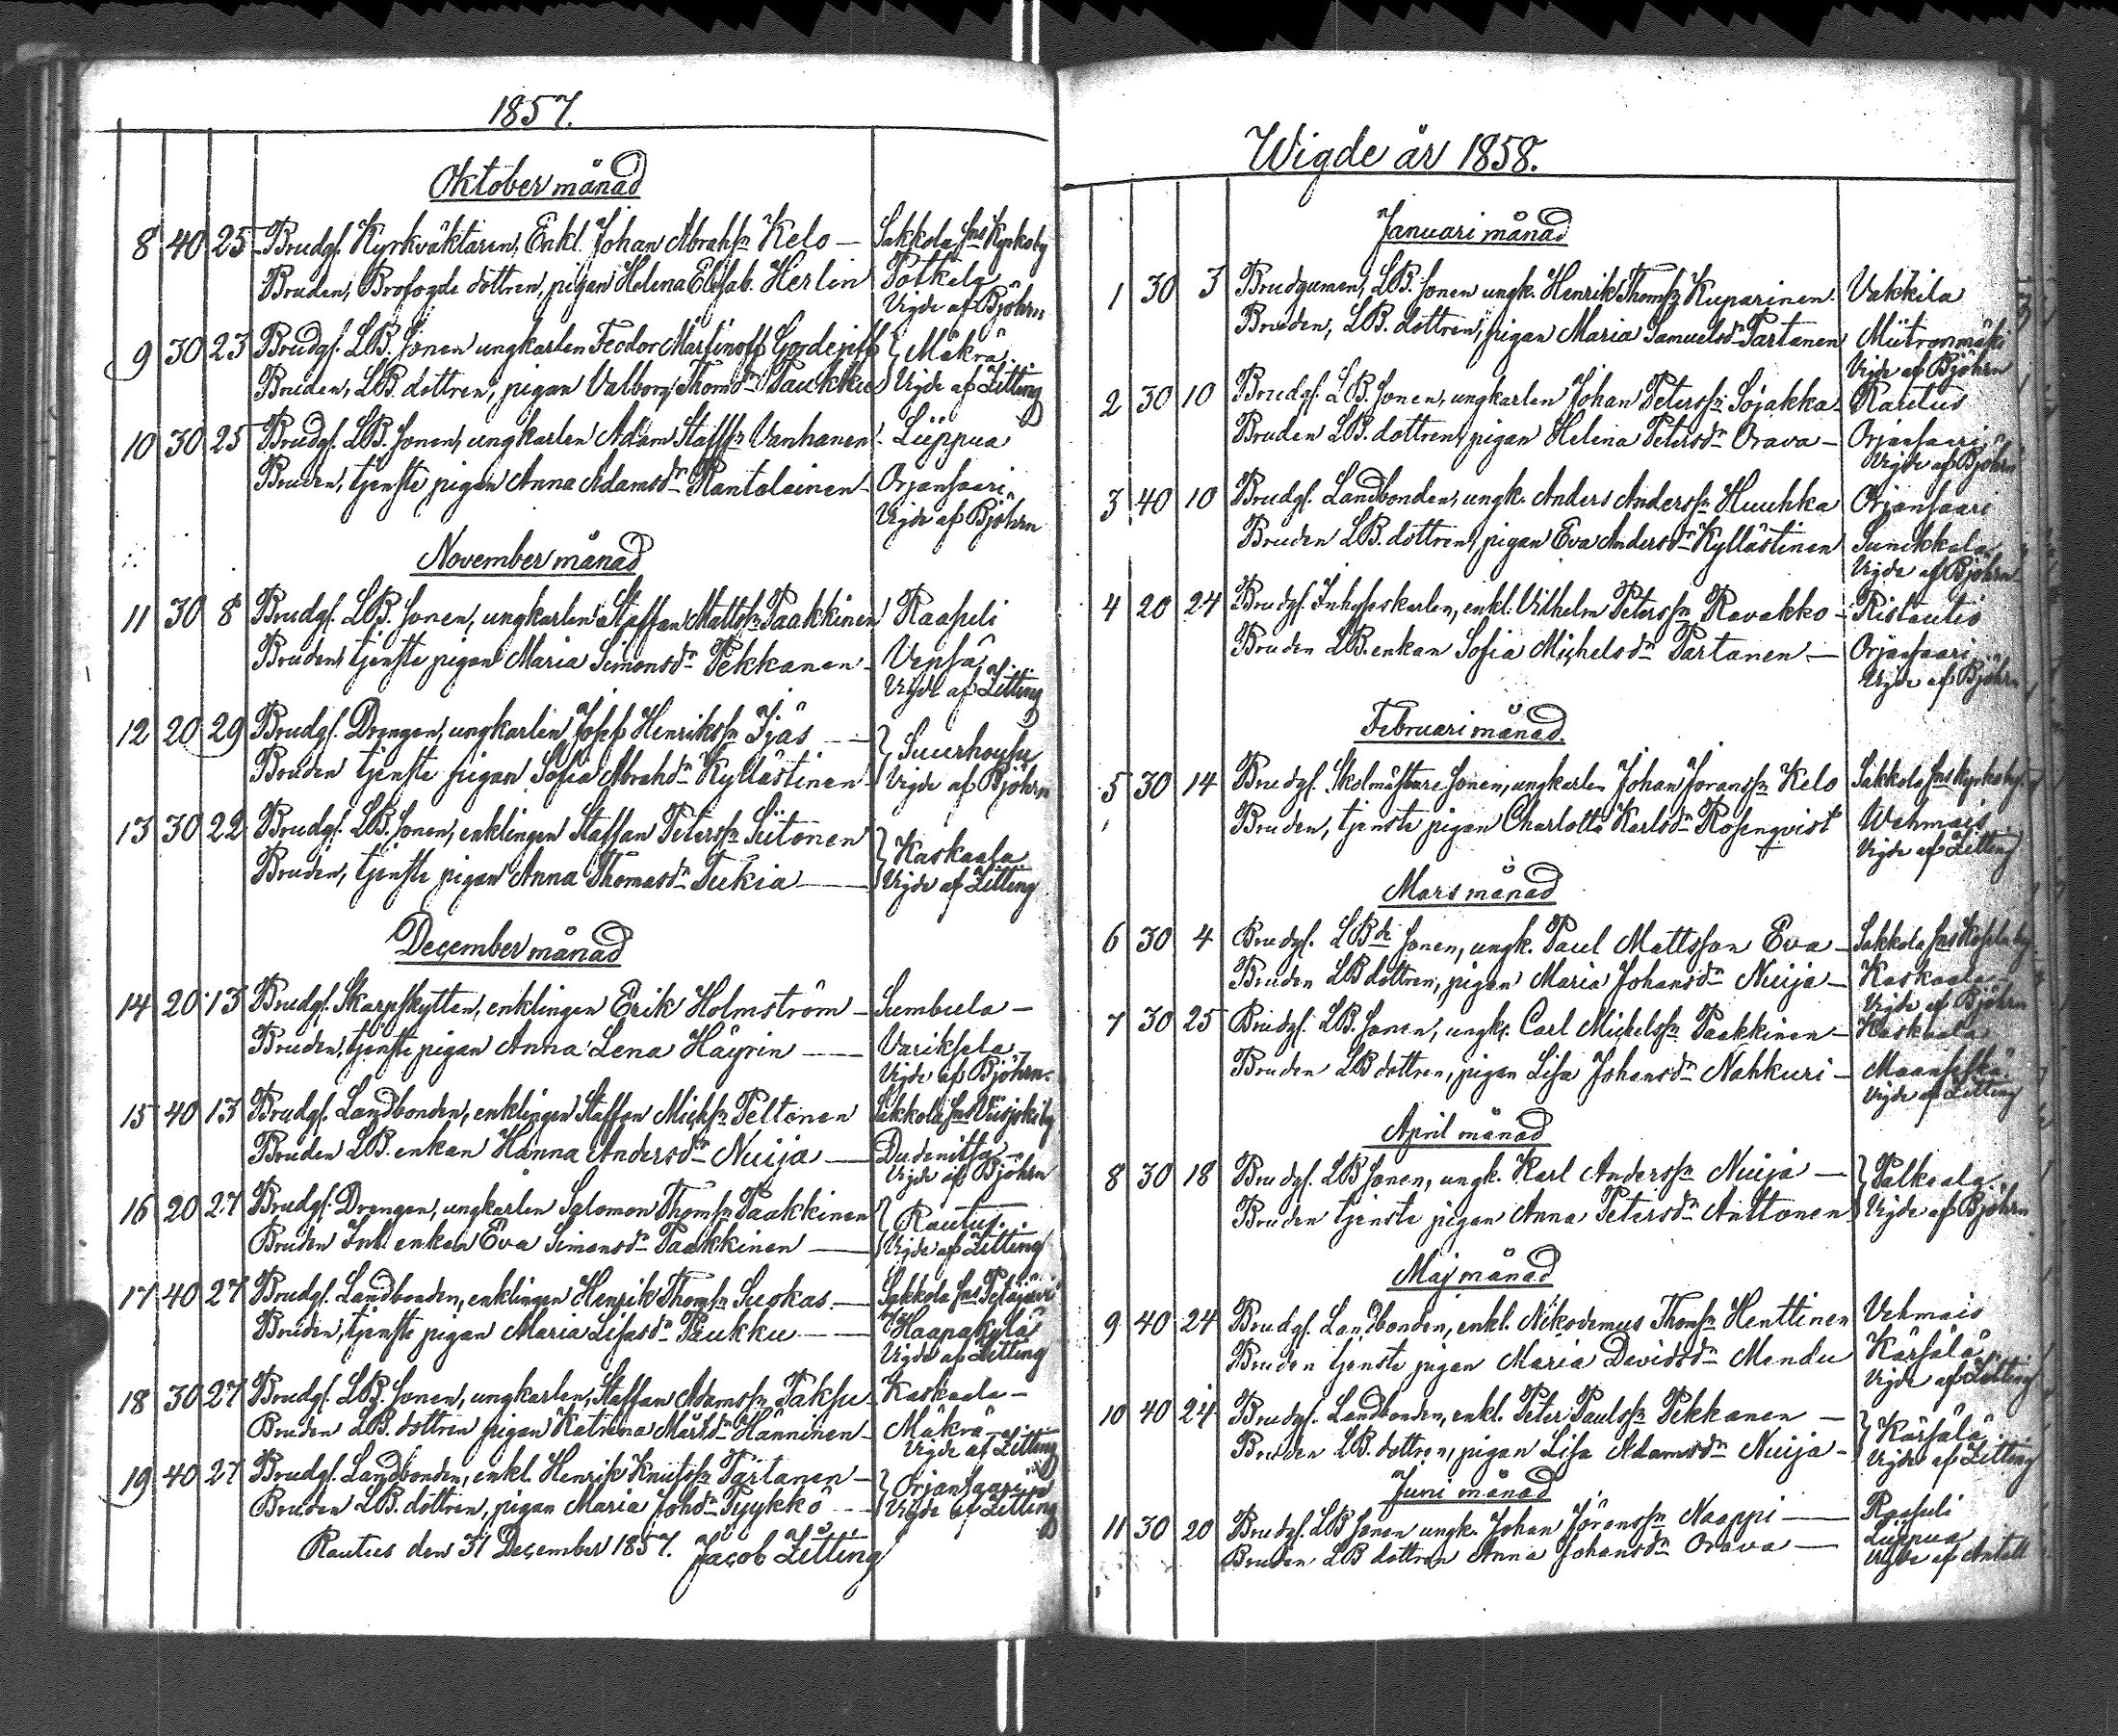 1857.
Oktober månad
8 40 25 Brudg. Kyrkväktaren, Enkl. Johan Abrahsn Kelo — Sakkola sns Kyrkoby
Bruden, Brofogde dottren, pigan Helena Elisab. Herlin Potkela
Vigde af Björhn
9 30 23 Brudg. LB. sonen ungkarlen Feodor Martinoff Gordejeff } Mäkrä
Bruden, LB. dottren, pigan Valborg Thomsdr Paukku } Vigde af Zitting
10 30 25 Brudg. LB. sonen, ungkarlen Adam Staffsn Vanhanen - Liippua
Bruden, tjenste pigan Anna Adamsdr Rantalainen - Orjansaari
Vigde af Björhn
November månad
11 30 8 Brudg. LB. sonen, ungkarlen Staffan Mattssn Paakkinen Raasuli
Bruden tjenste pigan Maria Simonsdr Pekkanen - Vepsä
Vigde af Zitting
12 20 29 Brudg. Drengen, ungkarlen Josef Henrikssn Ijäs — } Suurhousu
Bruden tjenste pigan Sofia Abrahdr Kyllästinen - } Vigde af Björhn
13 30 22 Brudg. LB. sonen, enklingen Staffan Peterssn Siitonen
Bruden, tjenste pigan Anna Thomasdr Tukia — } Kaskaala
Vigde af Zitting
December månad
14 20 13 Brudg. Skarpskytten, enklingen Erik Holmström - Sumbula —
Bruden, tjenste pigan Anna Lena Häyrin — Variksela
Vigde af Björhn
15 40 13 Brudg. Landbonden, enklingen Staffan Michsn Peltonen Sakkola sns Viisjoki by
Bruden LB. enkan Hanna Andersdr Nuija — Dudenitsa
Vigde af Björhn
16 20 27 Brudg. Drengen, ungkarlen Salomon Thomsn Paakkinen } Rautus
Bruden Inh. enkan Eva Simonsdr Paakkinen — } Vigde af Zitting
17 40 27 Brudg. Landbonden, enklingen Henrik Thomsn Suokas — Sakkola sns Petäjärvi
Bruden, tjenste pigan Maria Lisasdr Paukku — Haapakylä
Vigde af Zitting
18 30 27 Brudg. LB. sonen, ungkarlen, Staffan Adamssn Paksu - Kaskaala —
Bruden LB. dottren pigan Katrina Märtsdr Hänninen - Mäkrä
Vigde af Zitting
19 40 27 Brudg. Landbonden, enkl. Henrik Knutssn Partanen — } Orjansaari
Bruden LB. dottren, pigan Maria Johdr Pyykkö — } Vigde af Zitting
Rautus den 31 December 1857. Jacob Zitting
Wigde år 1858.
Januari månad
1 30 3 Brudgumen, LB. sonen ungk. Henrik Thomssn Kuparinen. Vakkila
Bruden, LB. dottren, pigan Maria Samuelsdr Partanen Miitronmäki
Vigde af Björhn
2 30 10 Brudg. LB. sonen, ungkarlen Johan Peterssn Sojakka - Rautus
Bruden LB. dottren, pigan Helena Petersdr Orava — Orjansaari
Vigde af Björhn
3 40 10 Brudg. Landbonden, ungk. Anders Anderssn Huuhka Orjansaari
Bruden LB. dottren, pigan Eva Andersdr Kyllästinen Sunikkala
Vigde af Björhn
4 20 24 Brudg. Inhyseskarlen, enkl. Vilhelm Peterssn Ravakko - Ristautio
Bruden LB. enkan Sofia Michelsdr Partanen — Orjansaari
Vigde af Björhn
Februari månad.
5 30 14 Brudg. Skolmästare sonen, ungkarlen Johan Joranssn Kelo Sakkola sns Kyrkoby
Bruden, tjenste pigan Charlotta Karlsdr Rosenqvist Wehmais
Vigde af Zitting
Mars månad
6 30 4 Brudg. LBde sonen, ungk. Paul Mattsson Eva — Sakkola sns Kosela by
Bruden LB dottren, pigan Maria Johansdr Nuija — Kaskaala
Vigde af Björhn
7 30 25 Brudg. LB. sonen, ungk. Carl Michelssn Paakkinen — Kaskaala
Bruden LB dottren, pigan Lisa Johansdr Nahkuri — Maanselkä
Vigde af Zitting
April månad
8 30 18 Brudg. LB sonen, ungk. Karl Anderssn Nuija — } Palkeala
Bruden tjenste pigan Anna Petersdr Anttonen } Vigde af Björhn
Maj månad
9 40 24 Brudg. Landbonden, enkl. Nikodemus Thomssn Henttinen Vehmais
Bruden tjenste pigan Maria Davidsdr Mandu Kärsälä
Vigde af Zitting
10 40 24 Brudg. Landbonden, enkl. Peter Paulssn Pekkanen — } Kärsälä
Bruden LB. dottren, pigan Lisa Adamsdr Nuija — } Vigde af Zitting
Juni månad
11 30 20 Brudg. LB sonen ungk. Johan Jöranssn Naappi — Raasuli
Bruden LB dottren Anna Johansdr Orava — Liippua
Vigde af Antell